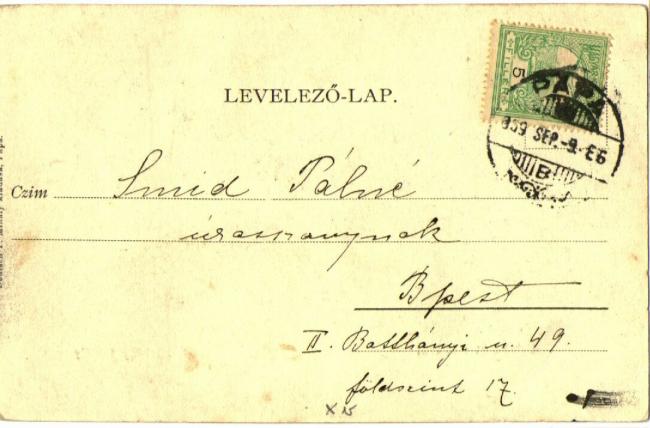 LEVELEZŐ-LAP.
5
FILLÉR
PÁPA
SEP.-9.-E6
B
Czim Smid Pálné
úrasszonynak
Bpest
II. Batthányi u. 49.
földszint 17